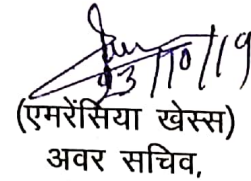 23/10/19
(एमरेंसिया खेस्स)
अवर सचिव,